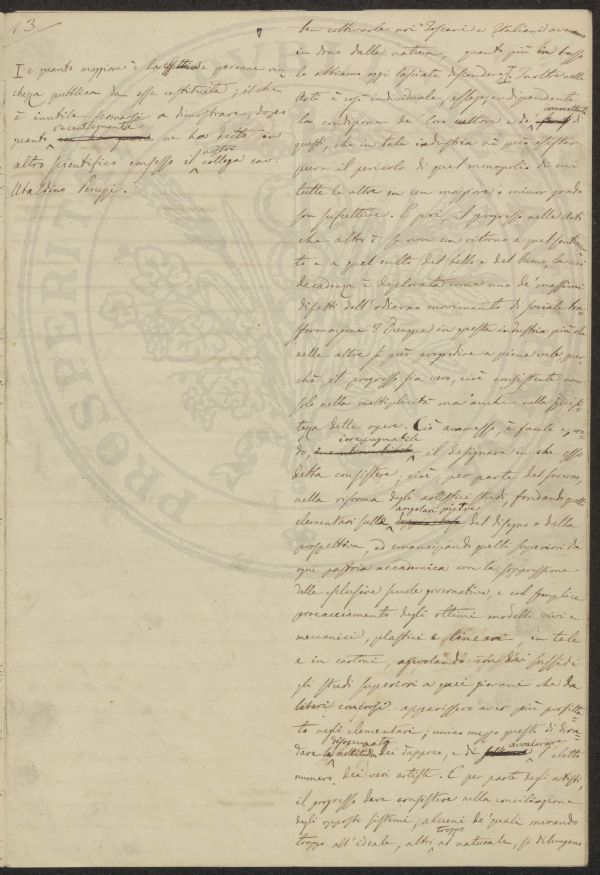 13
I e quanto maggiore è la effettiva e perenne ric-
chezza pubblica da esse costituita; il che
è inutile fermarsi a dimostrare, dopo
quanto recentemente ne ha detto in
altro scientifico consesso il nostro collega cav.
Ubaldino Peruzzi.
ben coltivarle noi Toscani e Italiani avemmo
in dono dalla natura, quanto più in basso
le abbiamo oggi lasciate discendere I. Inoltre nelle
Arti è così individuale, e indipendente
la condizione de' loro cultori e de' committenti di
questi, che in tale industria nè può esister
pure il pericolo di quel monopolio di cui
tutte le altre in un maggiore o minor grado
son suscettive. E poi, il progresso nelle Arti
che altro è se non un ritorno a quel sentimen-
to e a quel culto del bello e del buono, la cui
decadenza è deplorata come uno de' massimi
difetti dell'odierno movimento di sociale tra-
sformazione? Dunque in questa industria più che
nelle altre si può progredire a piene vele per-
chè il progresso sia vero, cioè consistente non
solo nella moltiplicità ma anche nella
tezza delle opere. Ciò ammesso, è facile e,
do, irrepugnabile il designare in che esso
debba consistere; cioè, per parte del Governo,
nella riforma degli artistici studi, fondando quelli
elementari sulle angolari pietre del disegno e della
prospettiva, ed emancipando quelli superiori da
ogni pastoia accademica con la soppressione
delle esclusive scuole governative, e col semplice
procacciamento degli ottimi modelli vivi e
meccanici, plastici e lineari, in tele
e in cartoni, agevolando con dei sussidi
gli studi superiori a quei giovani che da
liberi concorsi apparissero aver più profitta-
to negli elementari; unico mezzo questo di dira-
dare la disoccupata moltitudin dei dappoco, e di avvalorare l'eletto
numero dei veri artisti. E per parte degli artisti,
il progresso deve consistere nella conciliazione
degli opposti sistemi, alcuni de' quali mirando
troppo all'ideale, altri troppo al naturale, si dilungano